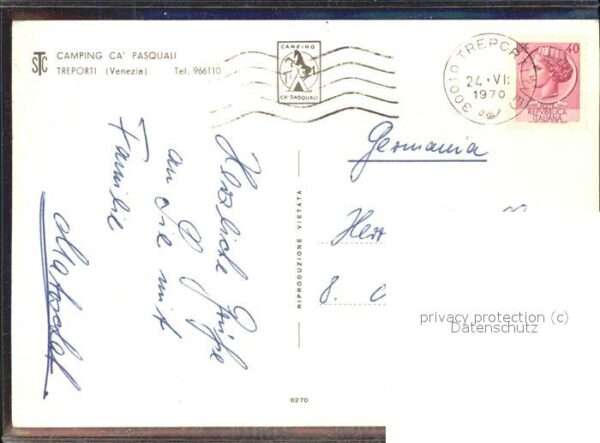 STC
CAMPING CA' PASQUALI
TREPORTI (Venezia) Tel. 966110
CAMPING
CA' PASQUALI
30010 TREPORTI
24·VI
1970
40
REPUBBLICA
ITALIANA
Herzliche Grüße
an Sie mit
Familie
RIPRODUZIONE VIETATA
Germania
Herr
8.
0270
privacy protection (c)
Datenschutz